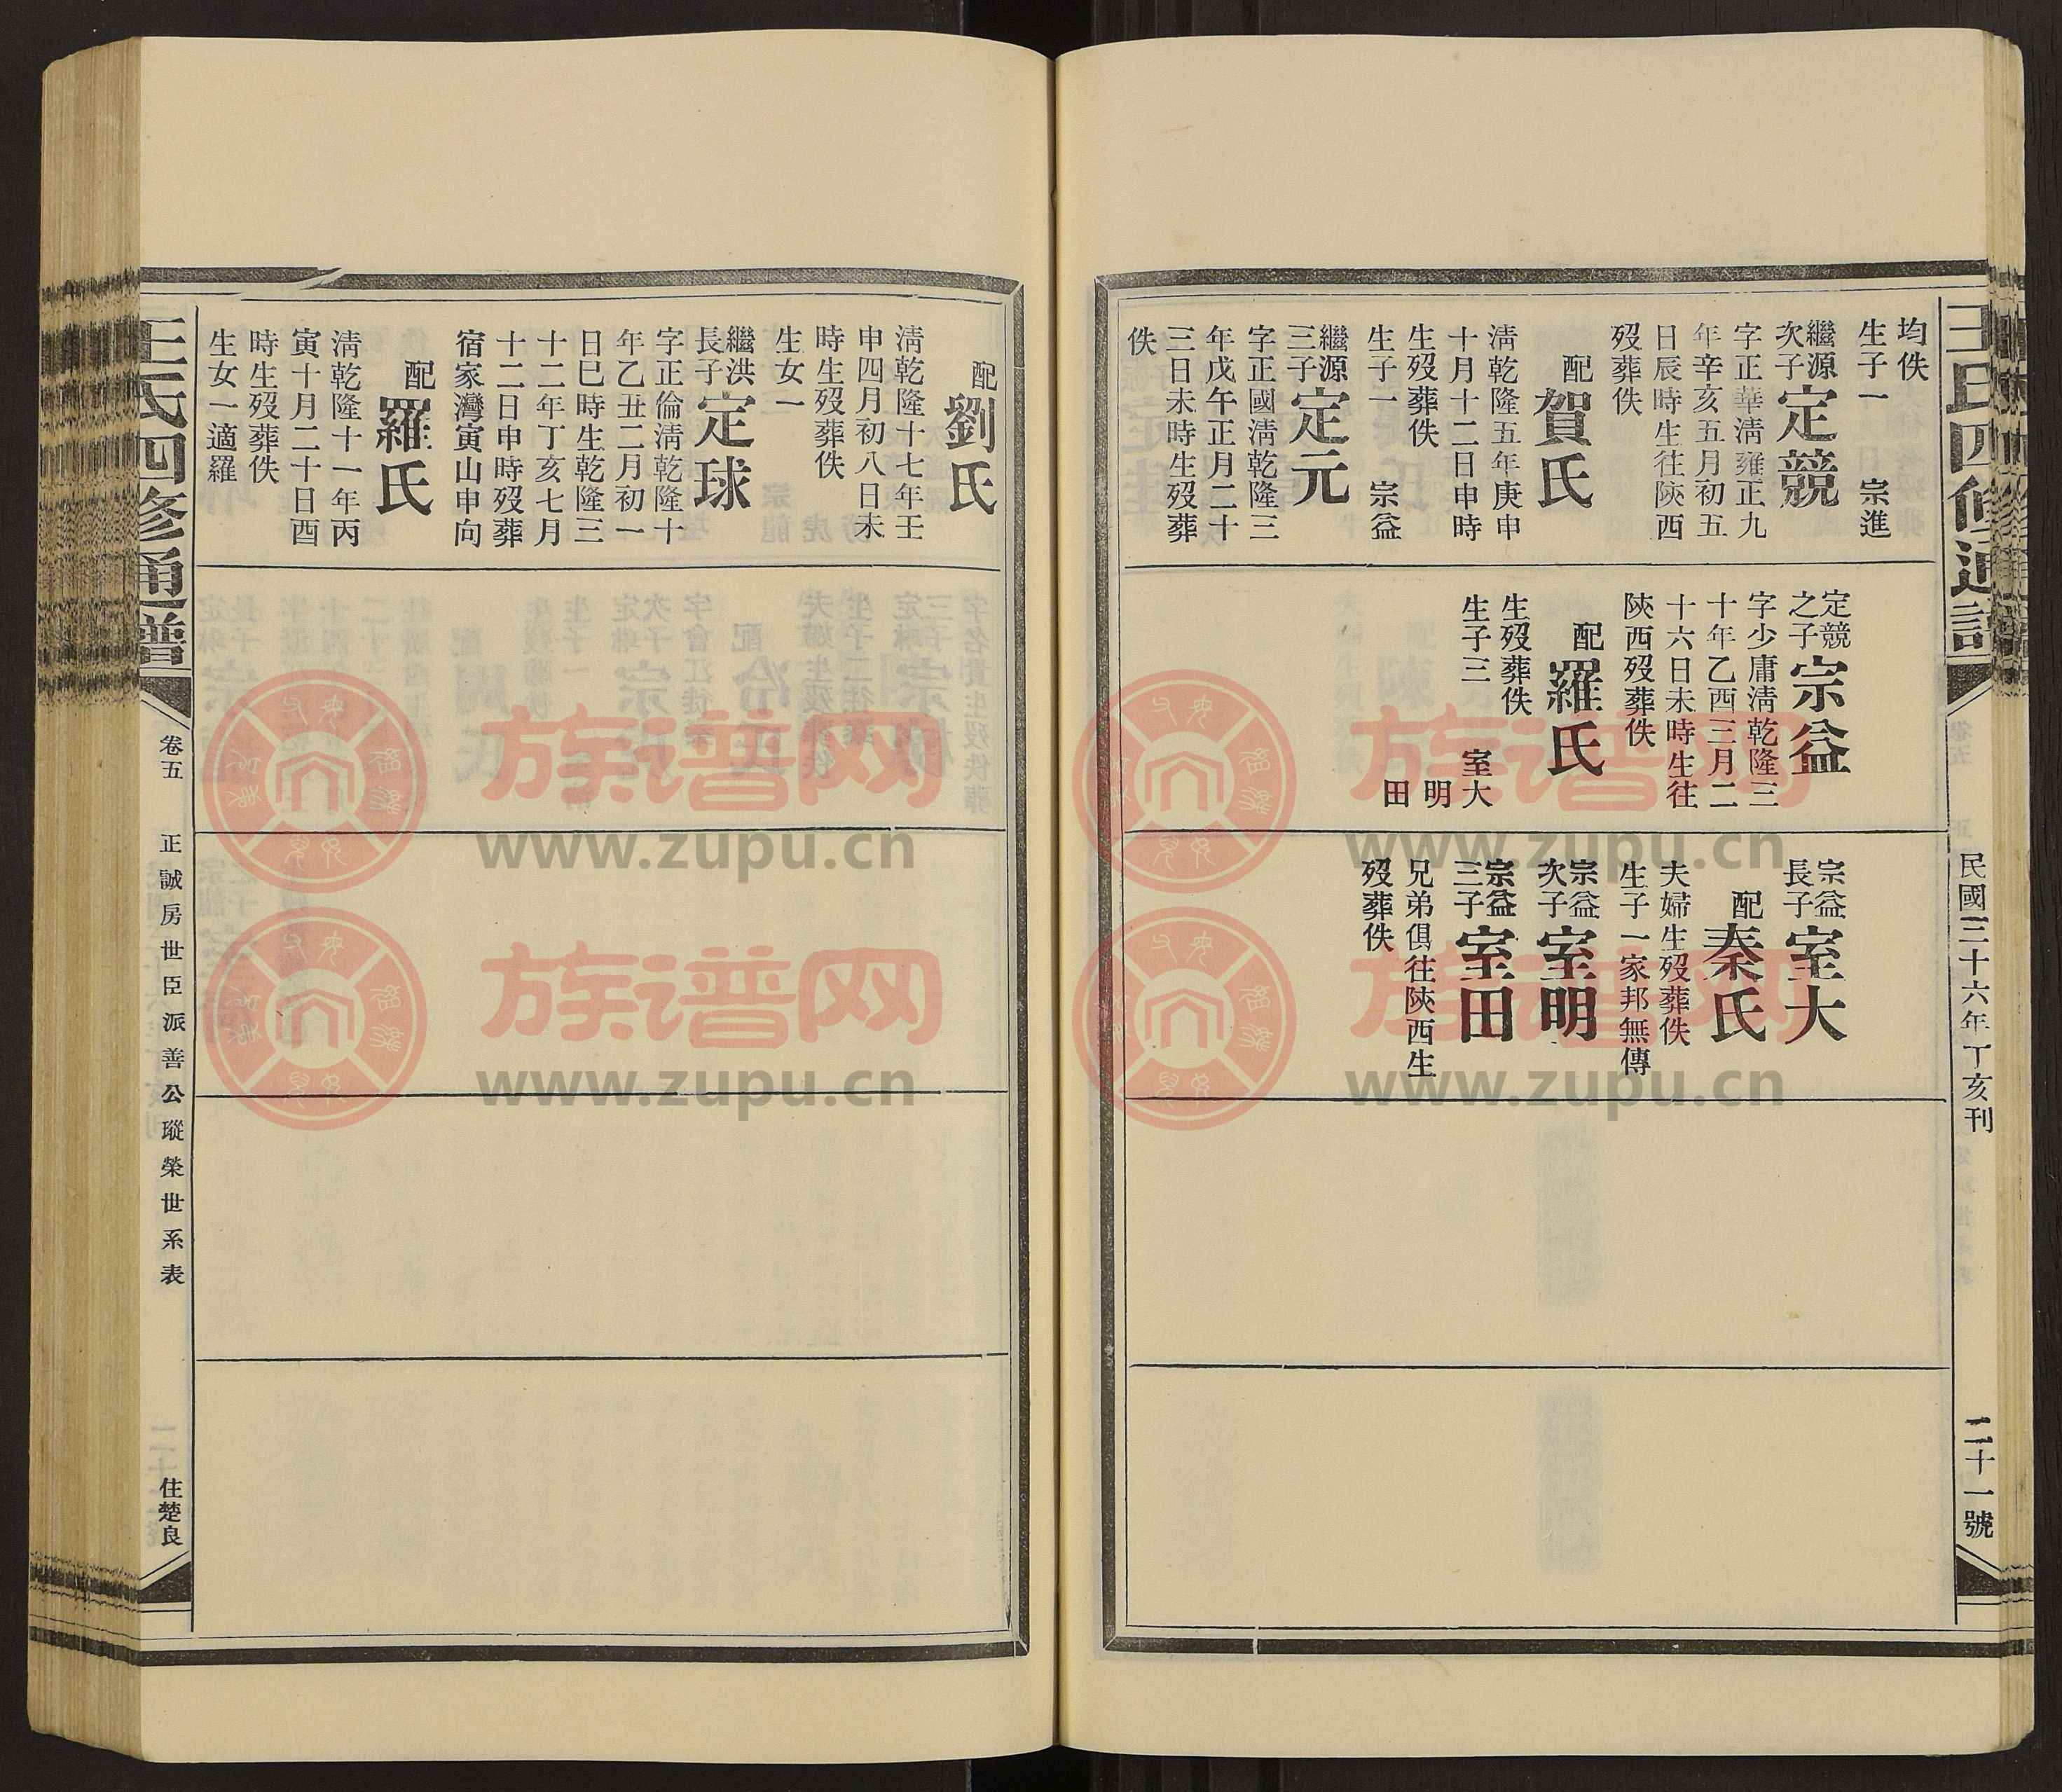 王氏四修通譜
民國三十六年丁亥刊
二十一號
均佚
生子一 宗進
繼源
次子
定競
字正華淸雍正九
年辛亥五月初五
日辰時生往陝西
歿葬佚
配賀氏
淸乾隆五年庚申
十月十二日申時
生歿葬佚
生子一 宗益
繼源
三子
定元
字正國淸乾隆三
年戊午正月二十
三日未時生歿葬
佚
定競
之子
宗益
字少庸淸乾隆三
十年乙酉三月二
十六日未時生往
陝西歿葬佚
配羅氏
生歿葬佚
生子三 室大
明
田
宗益
長子
室大
配秦氏
夫婦生歿葬佚
生子一家邦無傳
宗益
次子
室明
宗益
三子
室田
兄弟俱往陝西生
歿葬佚
配劉氏
淸乾隆十七年壬
申四月初八日未
時生歿葬佚
生女一
繼洪
長子
定球
字正倫淸乾隆十
年乙丑二月初一
日巳時生乾隆三
十二年丁亥七月
十二日申時歿葬
宿家灣寅山申向
配羅氏
淸乾隆十一年丙
寅十月二十日酉
時生歿葬佚
生女一適羅
王氏四修通譜
卷五
正誠房世臣派善公瑽榮世系表
住楚良
族谱网
www.zupu.cn
族谱网
www.zupu.cn
族谱网
www.zupu.cn
族谱网
www.zupu.cn